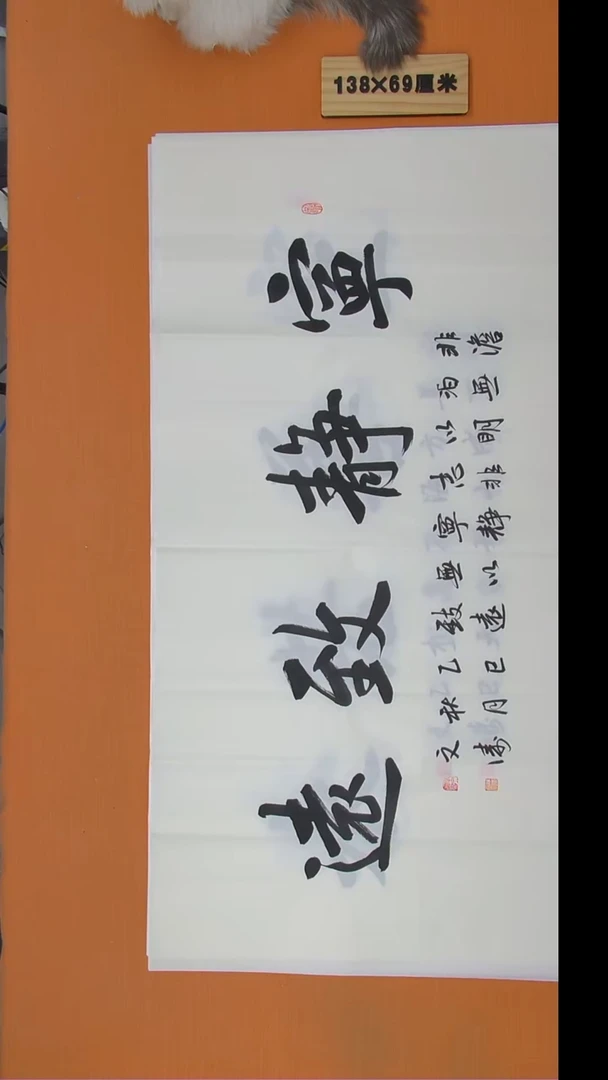 138×69厘米
寧靜致遠
非澹
泊無
以明
志非
寧靜
無以
致遠
乙巳
秋月
文濤